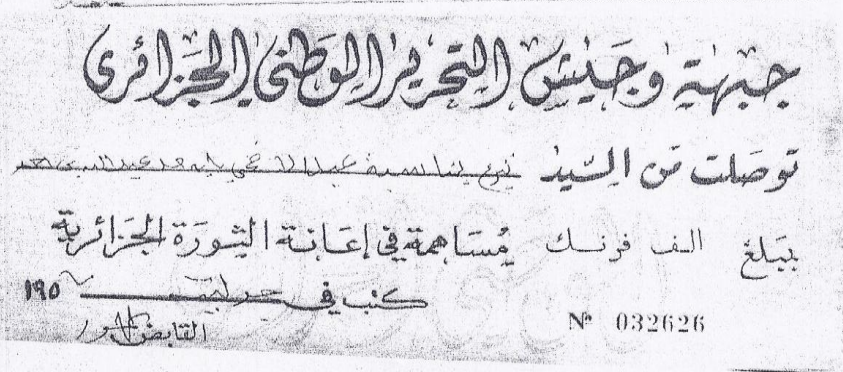 جبهة وجيش التحرير الوطني الجزائري
توصلت من السيد تبرع بمناسبة عيد الاضحى
بمبلغ الف فرنك مساهمة في إعانة الثورة الجزائرية
كتب في ١٩٥
القابض
Nº 032626